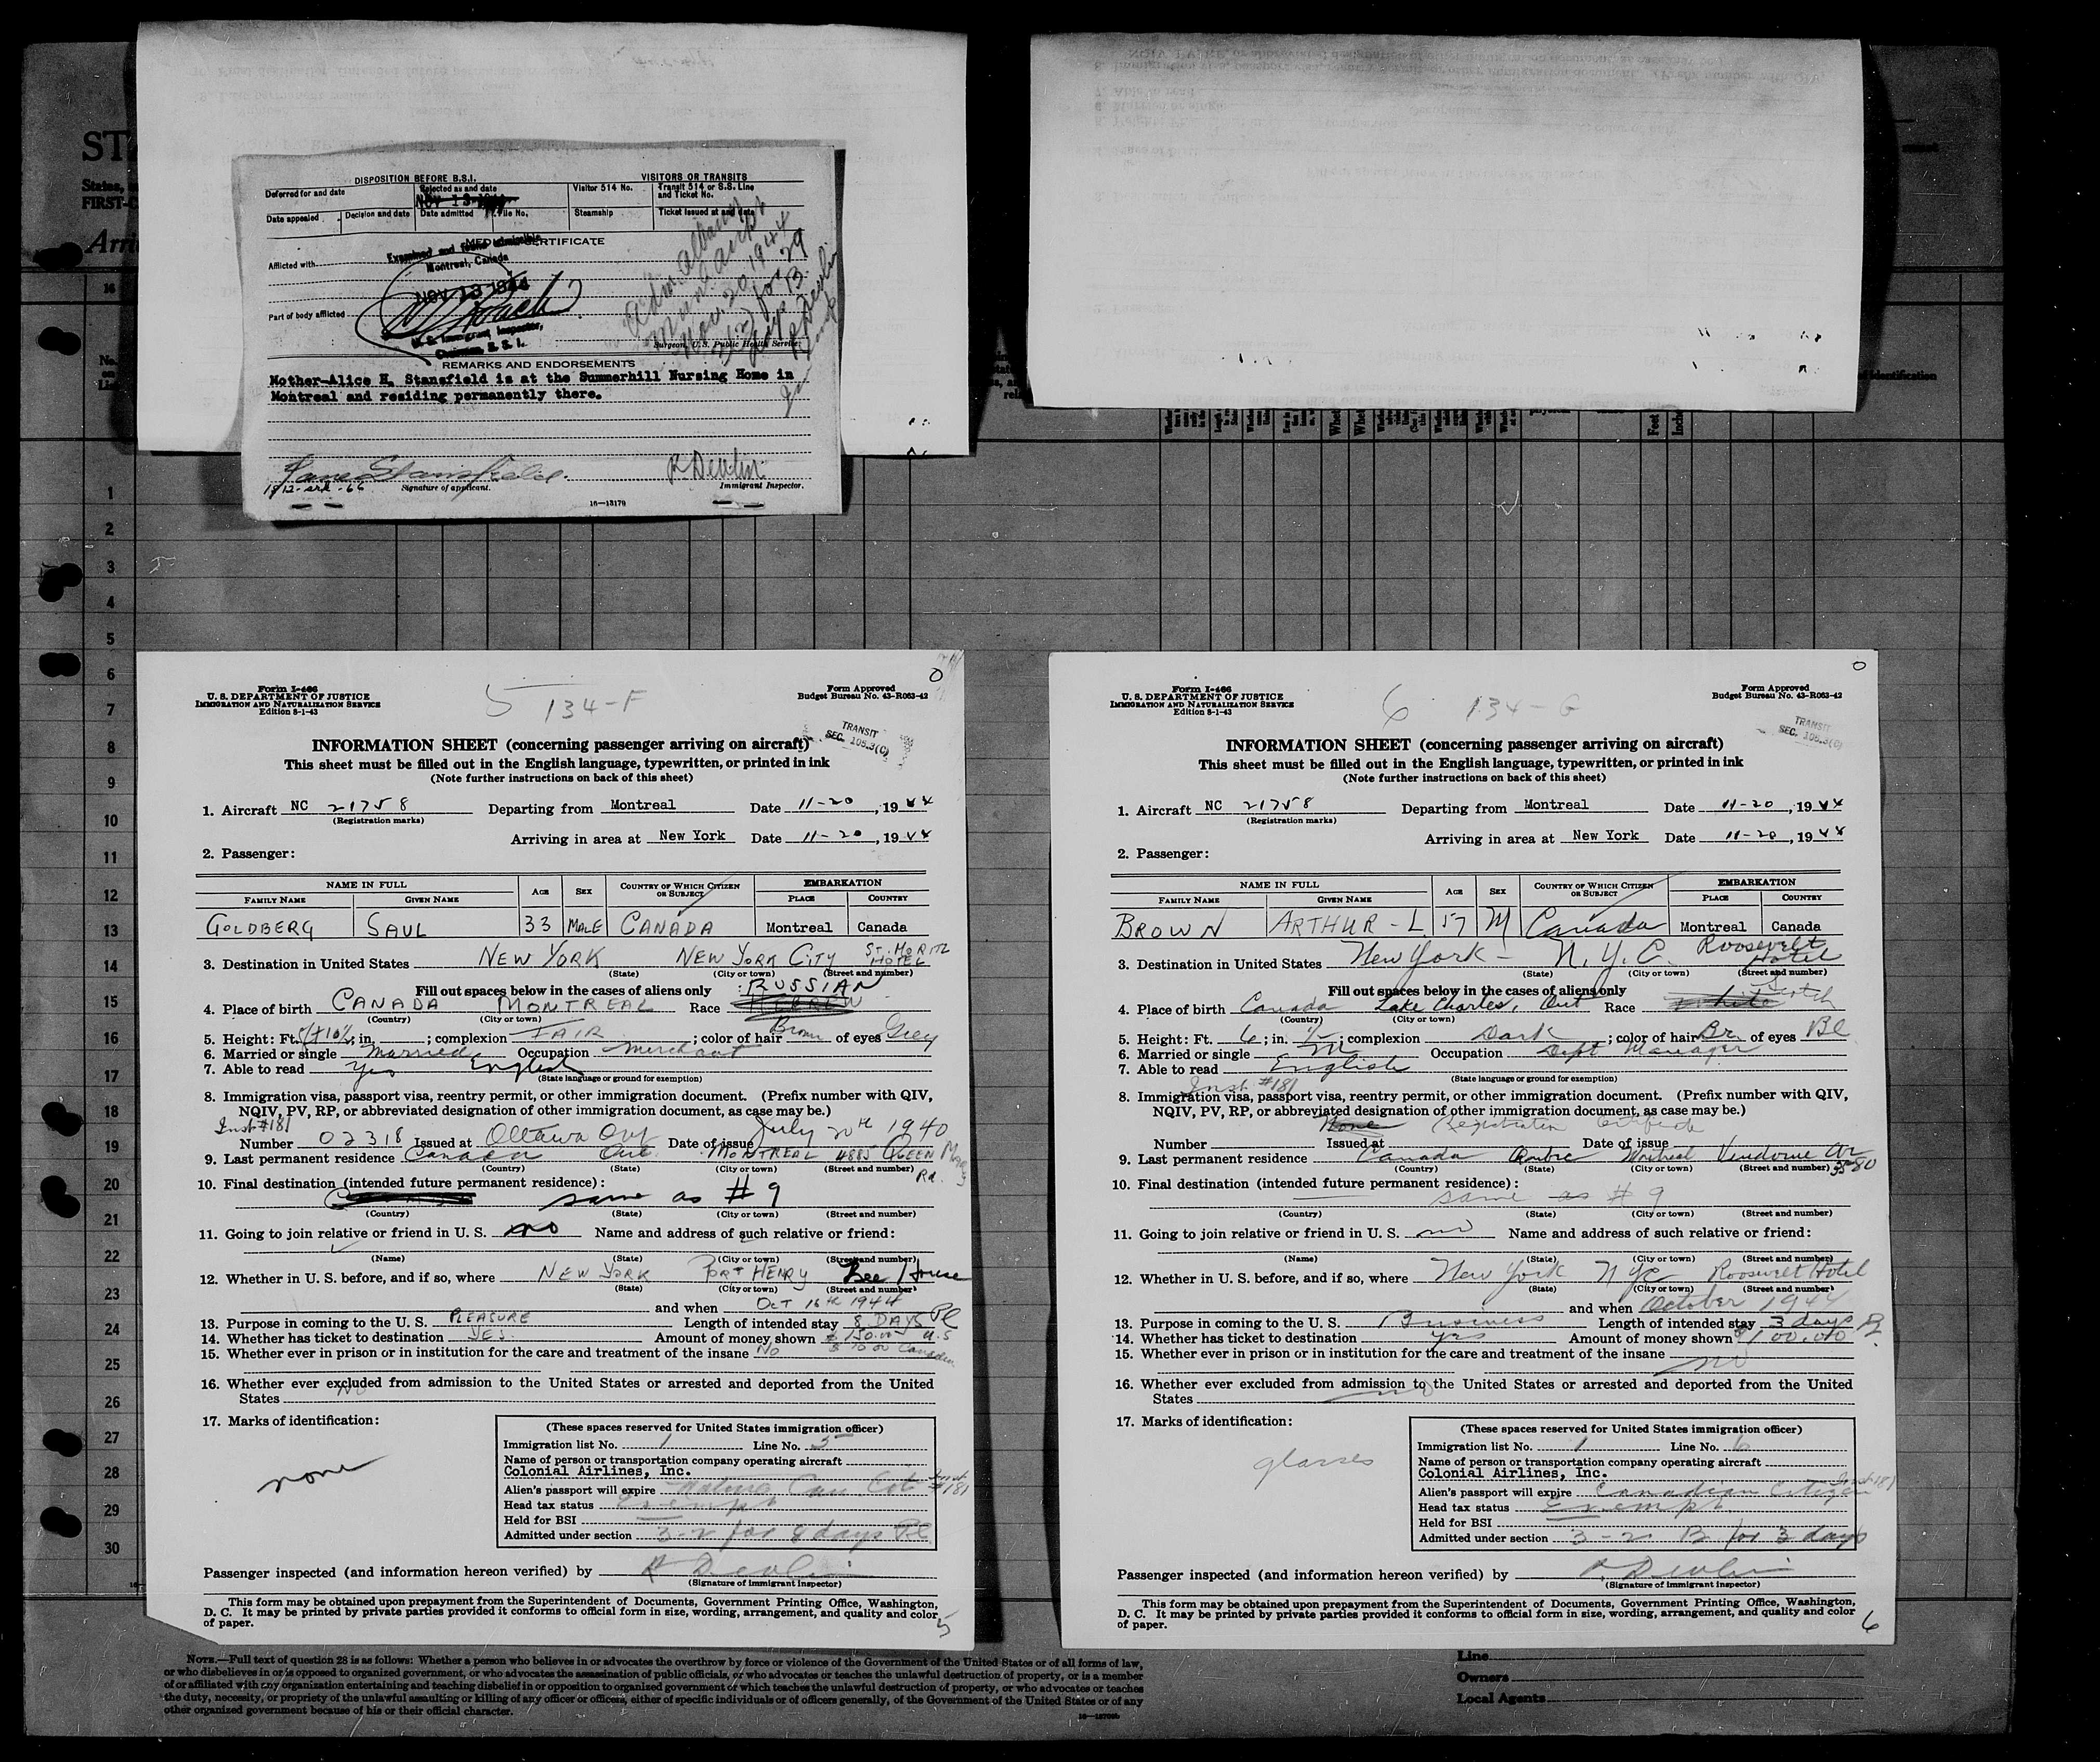 STA
States,
FIRST-C
Arri
DISPOSITION BEFORE B.S.I. VISITORS OR TRANSITS
Deferred for and date Rejected as and date Visitor 514 No. Transit 514 or S.S. Line and Ticket No.
NOV 13 1944
Date appealed Decision and date Date admitted File No. Steamship Ticket issued at and date
MEDICAL CERTIFICATE
Examined and found admissible
Afflicted with
Montreal, Canada
NOV 13 1944
Part of body afflicted
U. S. Immigrant Inspector,
Chairman, B. S. I.
Surgeon, U.S. Public Health Service.
Adm. Albany
Mun. Airpt
Nov. 20 1944
3(2) for 29
days B.
R Devlin
REMARKS AND ENDORSEMENTS
Mother-Alice H. Stansfield is at the Summerhill Nursing Home in
Montreal and residing permanently there.
Jane Stansfield. R Devlin
Signature of applicant. Immigrant Inspector.
16—13179
Form I-466
U. S. DEPARTMENT OF JUSTICE
IMMIGRATION AND NATURALIZATION SERVICE
Edition 8-1-43
5 134-F
Form Approved
Budget Bureau No. 43-R063-42
0
TRANSIT
SEC. 105.3(C)
INFORMATION SHEET (concerning passenger arriving on aircraft)
This sheet must be filled out in the English language, typewritten, or printed in ink
(Note further instructions on back of this sheet)
1. Aircraft NC 21758 Departing from Montreal Date 11-20, 1944
(Registration marks)
Arriving in area at New York Date 11-20, 1944
2. Passenger:
NAME IN FULL AGE SEX COUNTRY OF WHICH CITIZEN OR SUBJECT EMBARKATION
FAMILY NAME GIVEN NAME PLACE COUNTRY
GOLDBERG SAUL 33 MALE CANADA Montreal Canada
3. Destination in United States NEW YORK NEW YORK CITY ST. MORITZ HOTEL
(State) (City or town) (Street and number)
Fill out spaces below in the cases of aliens only RUSSIAN
4. Place of birth CANADA MONTREAL Race HEBREW
(Country) (City or town)
5. Height: Ft. 5 ft 10½; in. ; complexion FAIR; color of hair Brown of eyes Grey
6. Married or single Married Occupation merchant
7. Able to read Yes English
(State language or ground for exemption)
8. Immigration visa, passport visa, reentry permit, or other immigration document. (Prefix number with QIV,
NQIV, PV, RP, or abbreviated designation of other immigration document, as case may be.)
Inst #181
Number 02318 Issued at Ottawa Ont Date of issue July 20th 1940
9. Last permanent residence Canada Que MONTREAL 4885 QUEEN Mary Rd.
(Country) (State) (City or town) (Street and number)
10. Final destination (intended future permanent residence):
same as # 9
(Country) (State) (City or town) (Street and number)
11. Going to join relative or friend in U. S. no Name and address of such relative or friend:
(Name) (State) (City or town) (Street and number)
12. Whether in U. S. before, and if so, where NEW YORK PORT HENRY Lee House
(State) (City or town) (Street and number)
and when OCT 16th 1944
13. Purpose in coming to the U. S. PLEASURE Length of intended stay 8 DAYS Pl
14. Whether has ticket to destination YES. Amount of money shown $150.00 U.S
15. Whether ever in prison or in institution for the care and treatment of the insane No $ 10.00 Canadian
16. Whether ever excluded from admission to the United States or arrested and deported from the United
States No
17. Marks of identification:
none
(These spaces reserved for United States immigration officer)
Immigration list No. 1 Line No. 5
Name of person or transportation company operating aircraft
Colonial Airlines, Inc.
Alien's passport will expire Native Can Cit Inst #181
Head tax status Exempt
Held for BSI
Admitted under section 3-2 for 8 days Pl
Passenger inspected (and information hereon verified) by R Devlin
(Signature of immigrant inspector)
This form may be obtained upon prepayment from the Superintendent of Documents, Government Printing Office, Washington,
D. C. It may be printed by private parties provided it conforms to official form in size, wording, arrangement, and quality and color
of paper.
5
Form I-466
U. S. DEPARTMENT OF JUSTICE
IMMIGRATION AND NATURALIZATION SERVICE
Edition 8-1-43
6 134-G
Form Approved
Budget Bureau No. 43-R063-42
0
TRANSIT
SEC. 105.3(C)
INFORMATION SHEET (concerning passenger arriving on aircraft)
This sheet must be filled out in the English language, typewritten, or printed in ink
(Note further instructions on back of this sheet)
1. Aircraft NC 21758 Departing from Montreal Date 11-20, 1944
(Registration marks)
Arriving in area at New York Date 11-20, 1944
2. Passenger:
NAME IN FULL AGE SEX COUNTRY OF WHICH CITIZEN OR SUBJECT EMBARKATION
FAMILY NAME GIVEN NAME PLACE COUNTRY
BROWN ARTHUR - L 57 M Canada Montreal Canada
3. Destination in United States New York - N.Y.C. Roosevelt Hotel
(State) (City or town) (Street and number)
Fill out spaces below in the cases of aliens only Scotch
4. Place of birth Canada Lake Charles, Ont Race White
(Country) (City or town)
5. Height: Ft. 6; in. ½; complexion Dark; color of hair Br. of eyes Bl
6. Married or single M Occupation Dept Manager
7. Able to read English
(State language or ground for exemption)
Inst #181
8. Immigration visa, passport visa, reentry permit, or other immigration document. (Prefix number with QIV,
NQIV, PV, RP, or abbreviated designation of other immigration document, as case may be.)
None Registration Certificate
Number Issued at Date of issue
9. Last permanent residence Canada Quebec Montreal Vendome Av 3580
(Country) (State) (City or town) (Street and number)
10. Final destination (intended future permanent residence):
same as # 9
(Country) (State) (City or town) (Street and number)
11. Going to join relative or friend in U. S. no Name and address of such relative or friend:
(Name) (State) (City or town) (Street and number)
12. Whether in U. S. before, and if so, where New York NYC Roosevelt Hotel
(State) (City or town) (Street and number)
and when October 1944
13. Purpose in coming to the U. S. Business Length of intended stay 3 days
14. Whether has ticket to destination yes Amount of money shown $100.00
15. Whether ever in prison or in institution for the care and treatment of the insane no
16. Whether ever excluded from admission to the United States or arrested and deported from the United
States no
17. Marks of identification:
glasses
(These spaces reserved for United States immigration officer)
Immigration list No. 1 Line No. 6
Name of person or transportation company operating aircraft
Colonial Airlines, Inc.
Alien's passport will expire Canadian Citizen Inst 181
Head tax status Exempt
Held for BSI
Admitted under section 3-2 B for 3 days
Passenger inspected (and information hereon verified) by R. Devlin
(Signature of immigrant inspector)
This form may be obtained upon prepayment from the Superintendent of Documents, Government Printing Office, Washington,
D. C. It may be printed by private parties provided it conforms to official form in size, wording, arrangement, and quality and color
of paper.
6
16
1
2
3
4
5
6
7
8
9
10
11
12
13
14
15
16
17
18
19
20
21
22
23
24
25
26
27
28
29
30
of identification
Feet
Inches
NOTE.—Full text of question 28 is as follows: Whether a person who believes in or advocates the overthrow by force or violence of the Government of the United States or of all forms of law,
or who disbelieves in or is opposed to organized government, or who advocates the assassination of public officials, or who advocates or teaches the unlawful destruction of property, or is a member
of or affiliated with any organization entertaining and teaching disbelief in or opposition to organized government or which teaches the unlawful destruction of property, or who advocates or teaches
the duty, necessity, or propriety of the unlawful assaulting or killing of any officer or officers, either of specific individuals or of officers generally, of the Government of the United States or of any
other organized government because of his or their official character.
Line
Owners
Local Agents